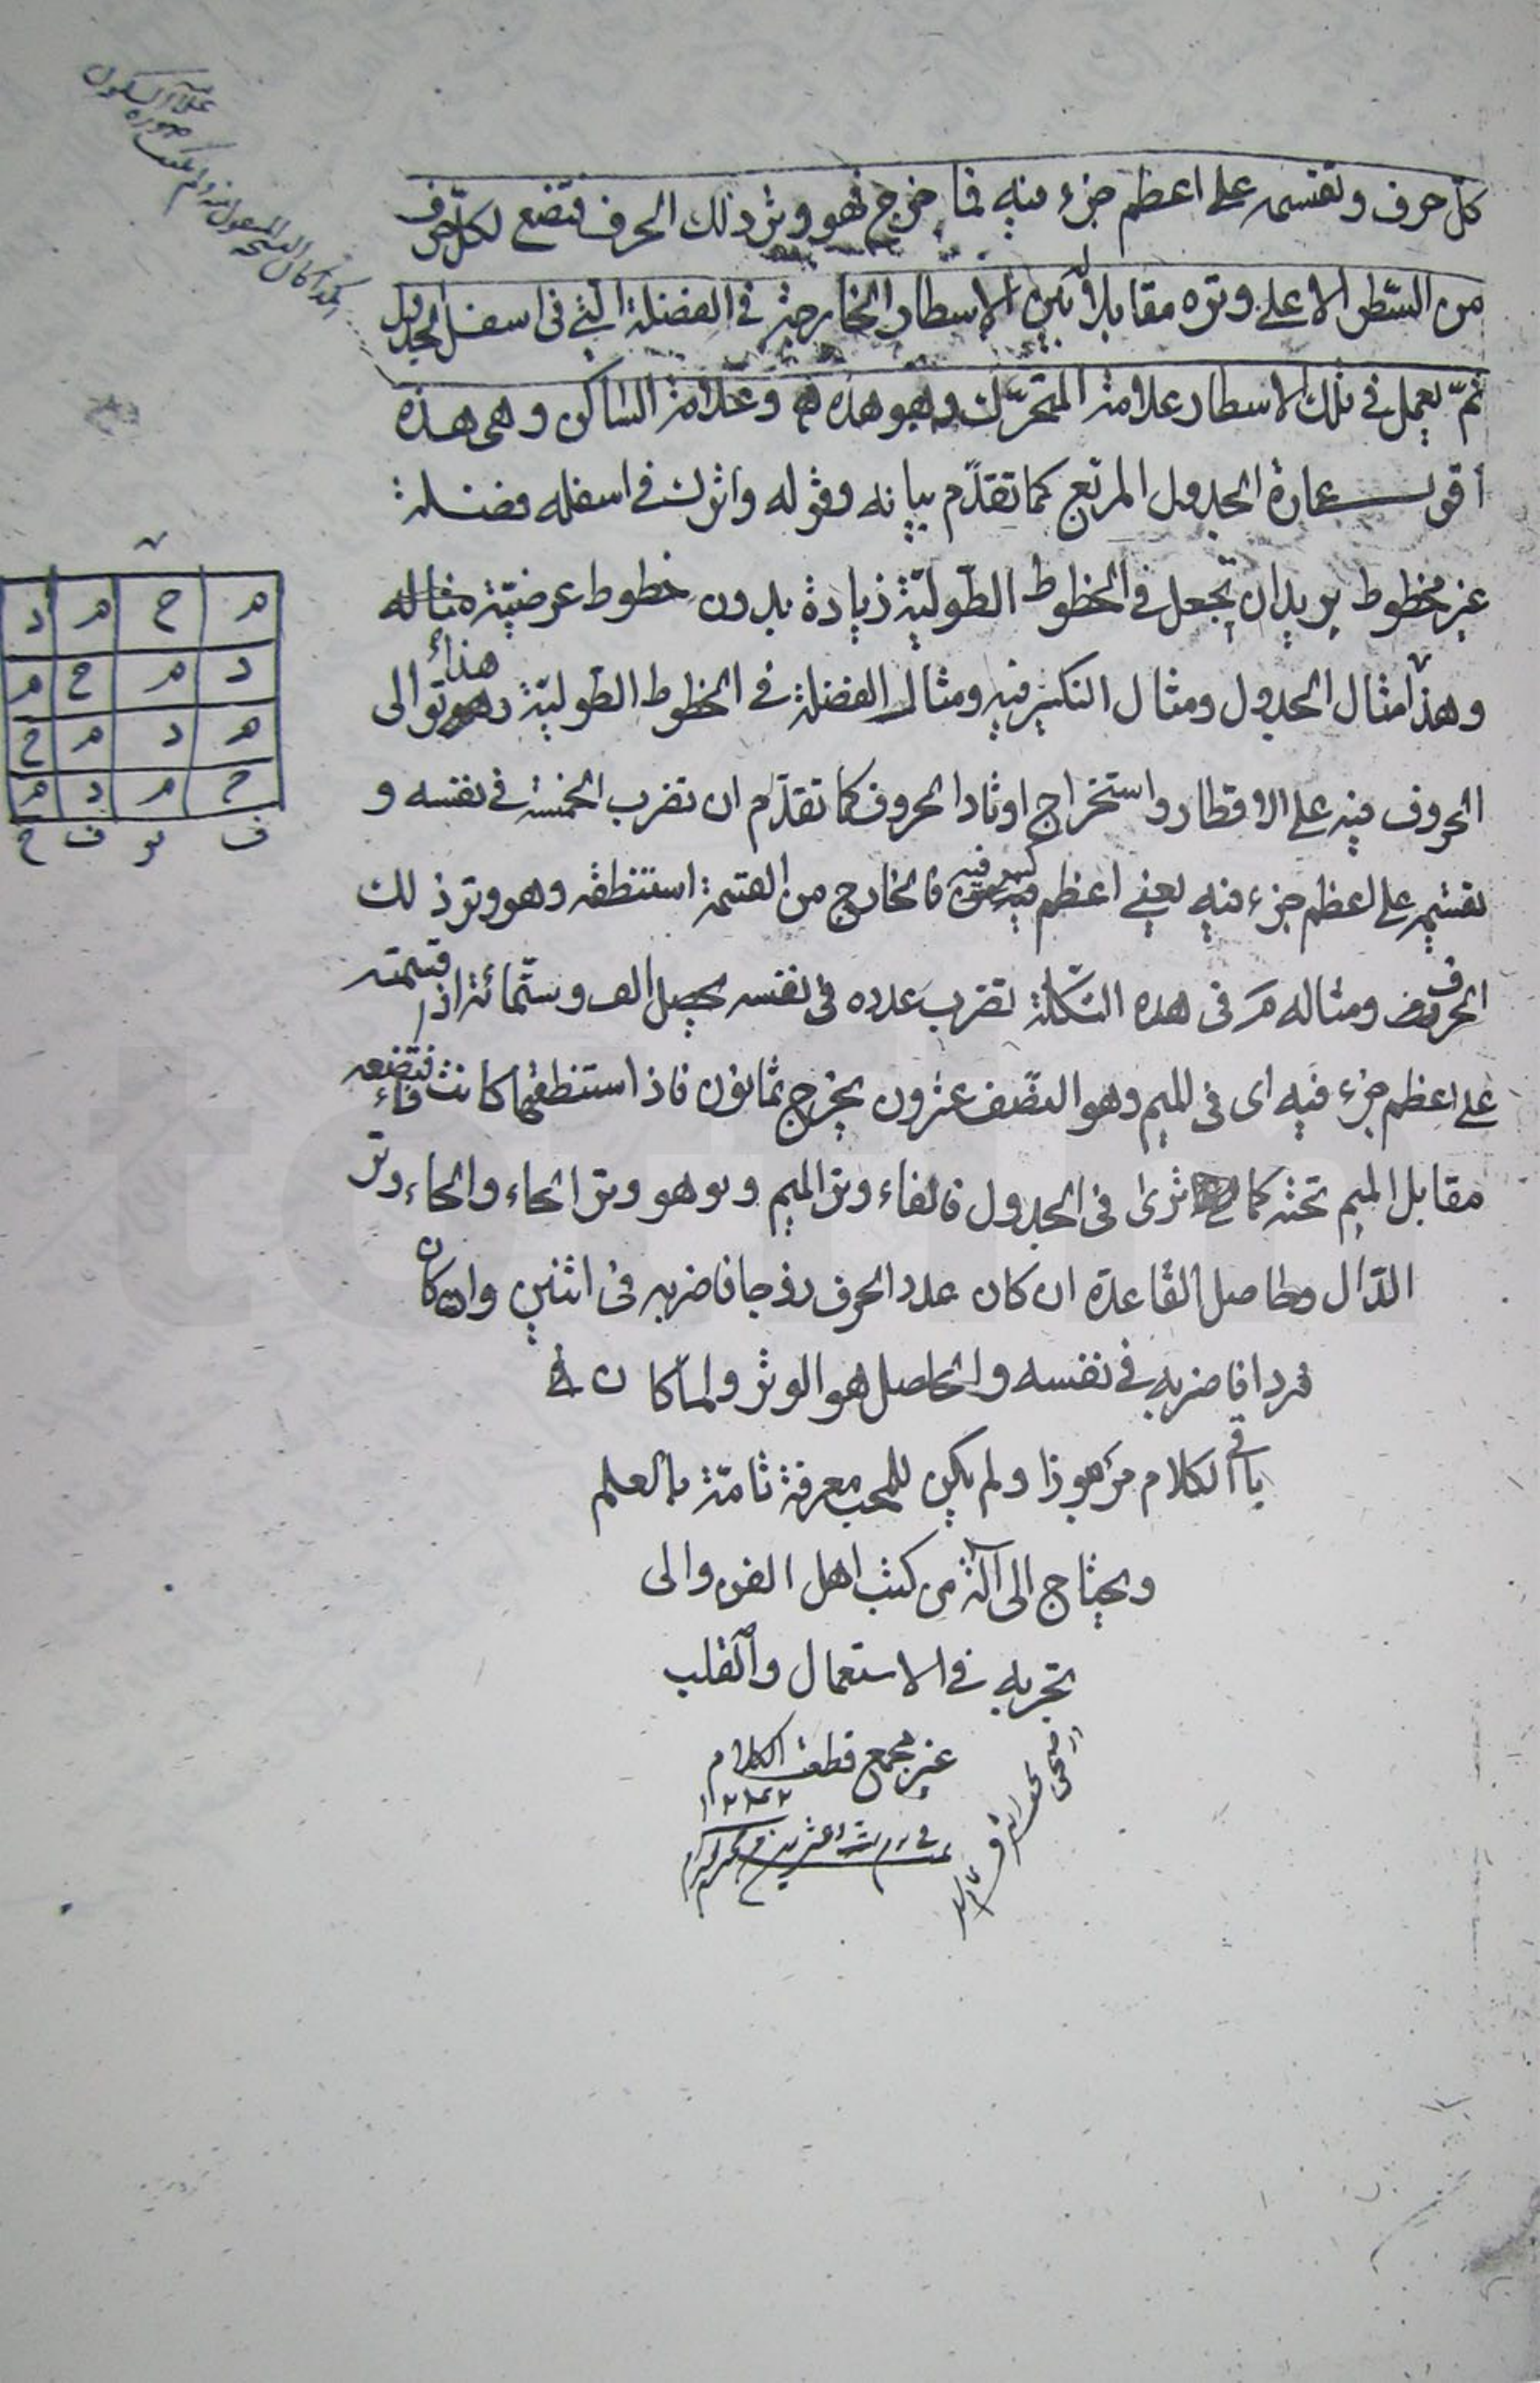 كلّ حرف وتقسمه على اعظم جزء فيه فما خرج فهو وتر ذلك الحرف فتضع لكلّ حرف
من السّطر الاعلى وتره مقابلا بين الاسطار الخارجة فى الفضلة الّتى فى اسفل الجدول
ثمّ يعمل فى تلك الاسطار علامة المتحرّك وهو هذه ه وعلامة السّاكن وهى هذه
اقول عبارة الجدول المربّع كما تقدّم بيانه وقوله واترك فى اسفله فضلة
غير مخطوط يريد ان تجعل فى الخطوط الطّوليّة زيادة بدون خطوط عرضيّة مثاله
هذا
وهذا مثال الجدول ومثال التكسير فيه ومثال الفضلة فى الخطوط الطّوليّة وهو توالى
الحروف فيه على الاقطار واستخراج اوتاد الحروف كما تقدّم ان تضرب الخمسة فى نفسه و
تقسّمه على اعظم جزء فيه يعنى اعظم كسور فيه فالخارج من القسمة استنطقه وهو وتر ذلك
الحرف ومثاله م فى هذه الشّكلة تضرب عدده فى نفسه يحصل الف وستّمائة اذا قسمته
على اعظم جزء فيه اى فى الميم وهو النّصف عشرون يخرج ثمانون فاذا استنطقها كانت فاء فتضعه
مقابل الميم تحته كما ترى فى الجدول فالفاء وتر الميم و يو هو وتر الحاء والحاء وتر
الدّال وحاصل القاعدة ان كان عدد الحرف زوجا فاضربه فى اثنين وان كان
فردا فاضربه فى نفسه والحاصل هو الوتر ولمّا كان
باقى الكلام مرموزا ولم يكن للمحب معرفة تامّة بالعلم
ويحتاج الى آلة من كتب اهل الفن والى
تجربه فى الاستعمال والقلب
غير مجمع قطف الكلام
م ح م د
د م ح م
م د م ح
ح م د م
ف يو ف ح